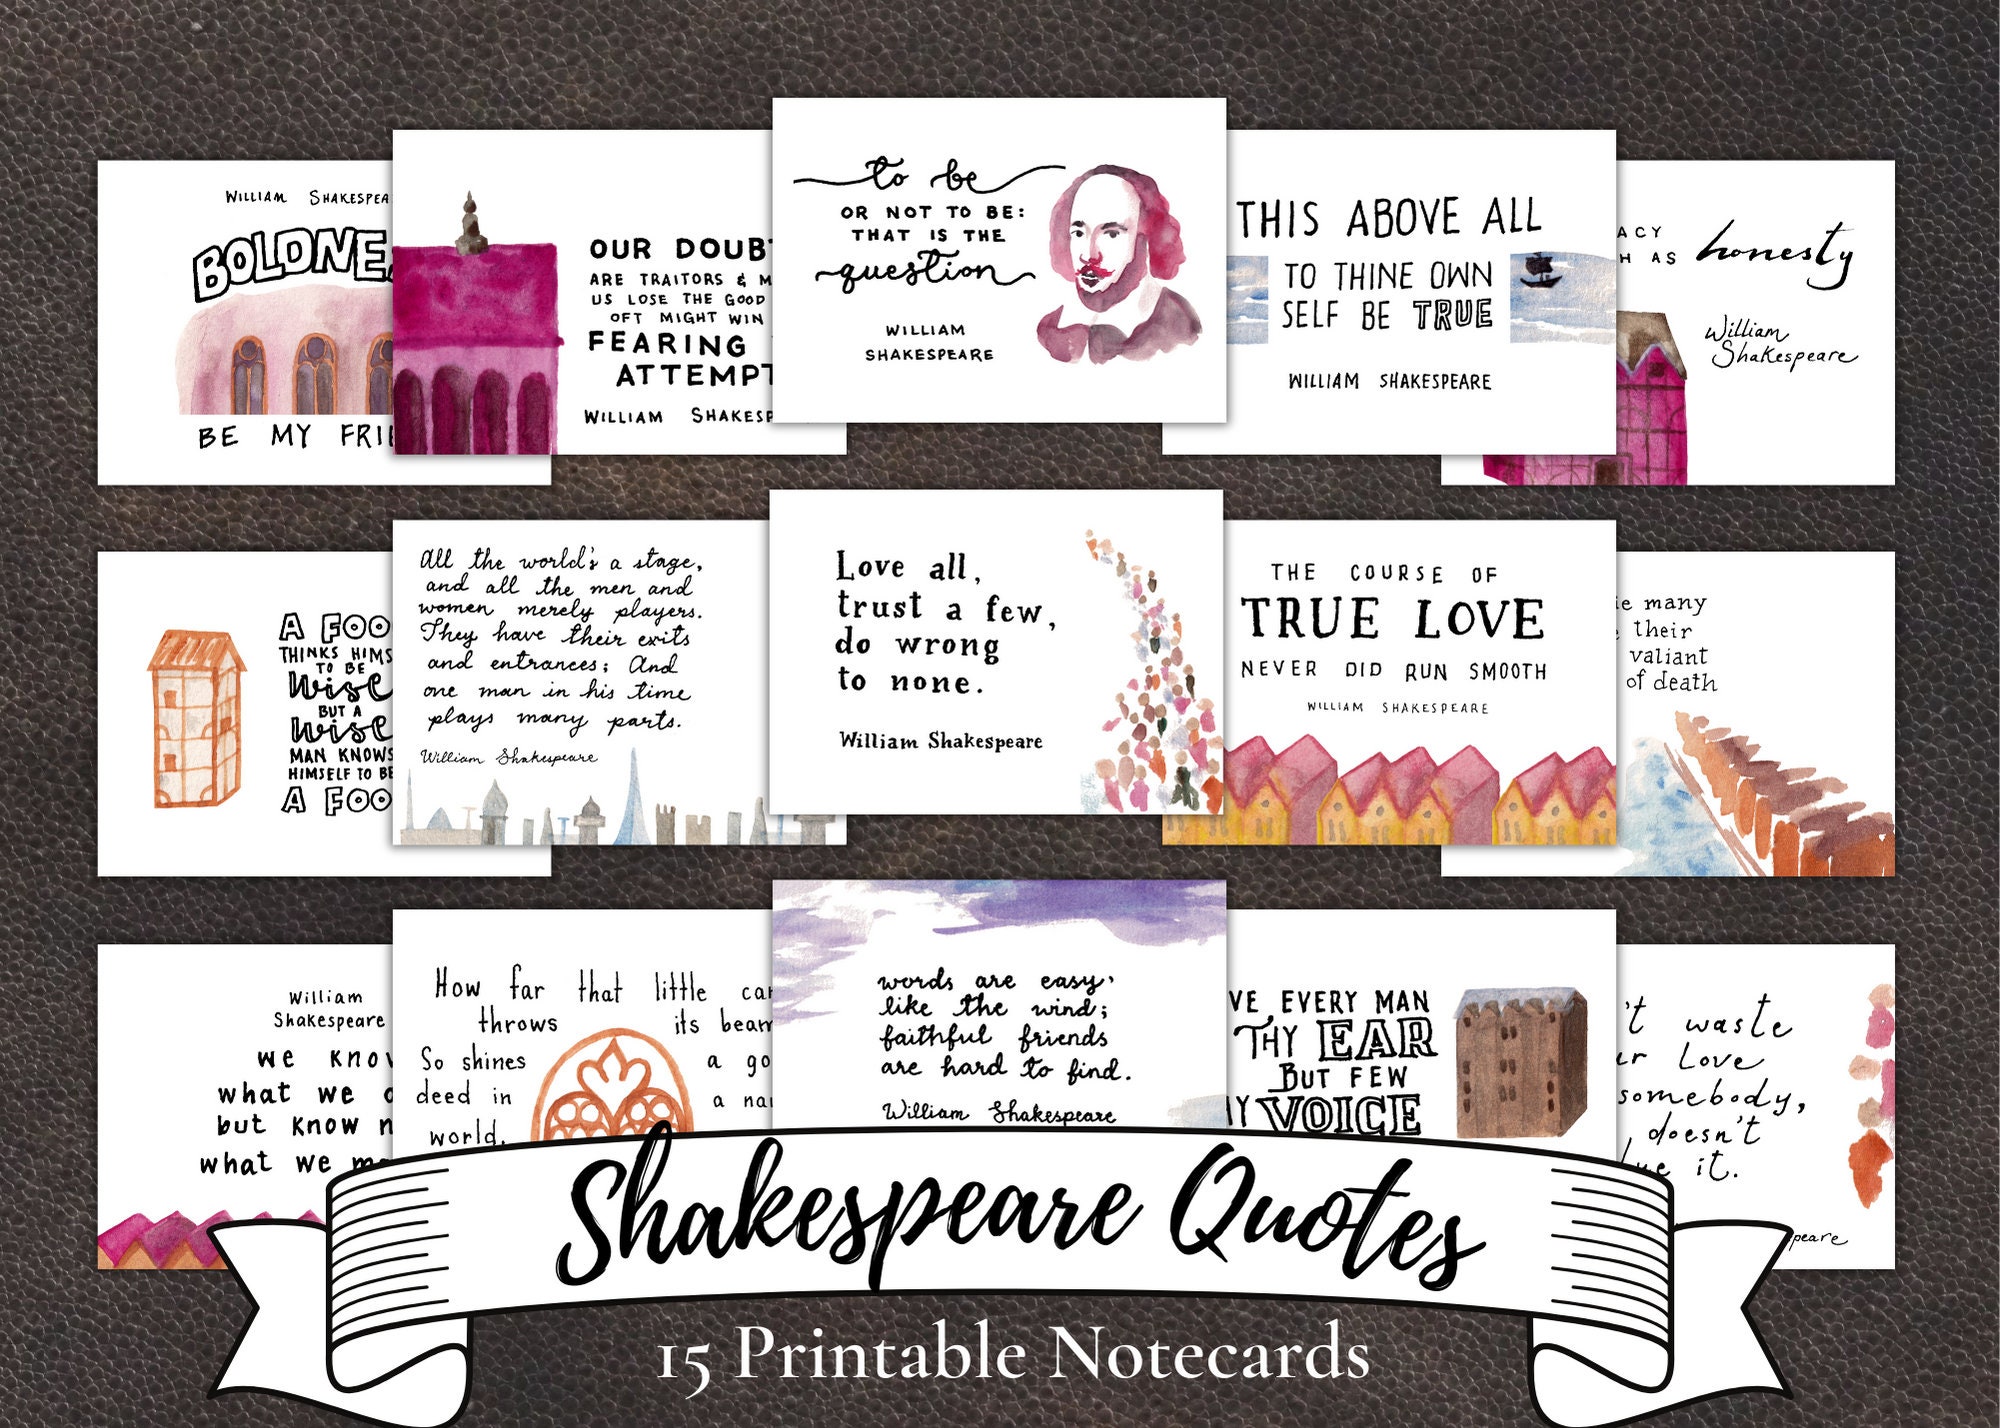 WILLIAM SHAKESPEA
BOLDNE
BE MY FRIE
OUR DOUB
ARE TRAITORS & M
US LOSE THE GOOD
OFT MIGHT WIN
FEARING
ATTEMPT
WILLIAM SHAKESP
to be
OR NOT TO BE:
THAT IS THE
question
WILLIAM
SHAKESPEARE
THIS ABOVE ALL
TO THINE OWN
SELF BE TRUE
WILLIAM SHAKESPEARE
ACY
H AS honesty
William
Shakespeare
A FOO
THINKS HIMS
TO BE
Wise
BUT A
Wise
MAN KNOWS
HIMSELF TO BE
A FOO
All the world's a stage,
and all the men and
women merely players.
They have their exits
and entrances; And
one man in his time
plays many parts.
William Shakespeare
Love all,
trust a few,
do wrong
to none.
William Shakespeare
THE COURSE OF
TRUE LOVE
NEVER DID RUN SMOOTH
WILLIAM SHAKESPEARE
ie many
their
valiant
of death
William
Shakespeare
we know
what we a
but know n
what we m
How far that little can
throws its beam
So shines a go
deed in a nau
world.
words are easy,
like the wind;
faithful friends
are hard to find.
William Shakespeare
VE EVERY MAN
THY EAR
BUT FEW
HY VOICE
't waste
ur Love
somebody,
doesn't
ue it.
peare
Shakespeare Quotes
15 Printable Notecards